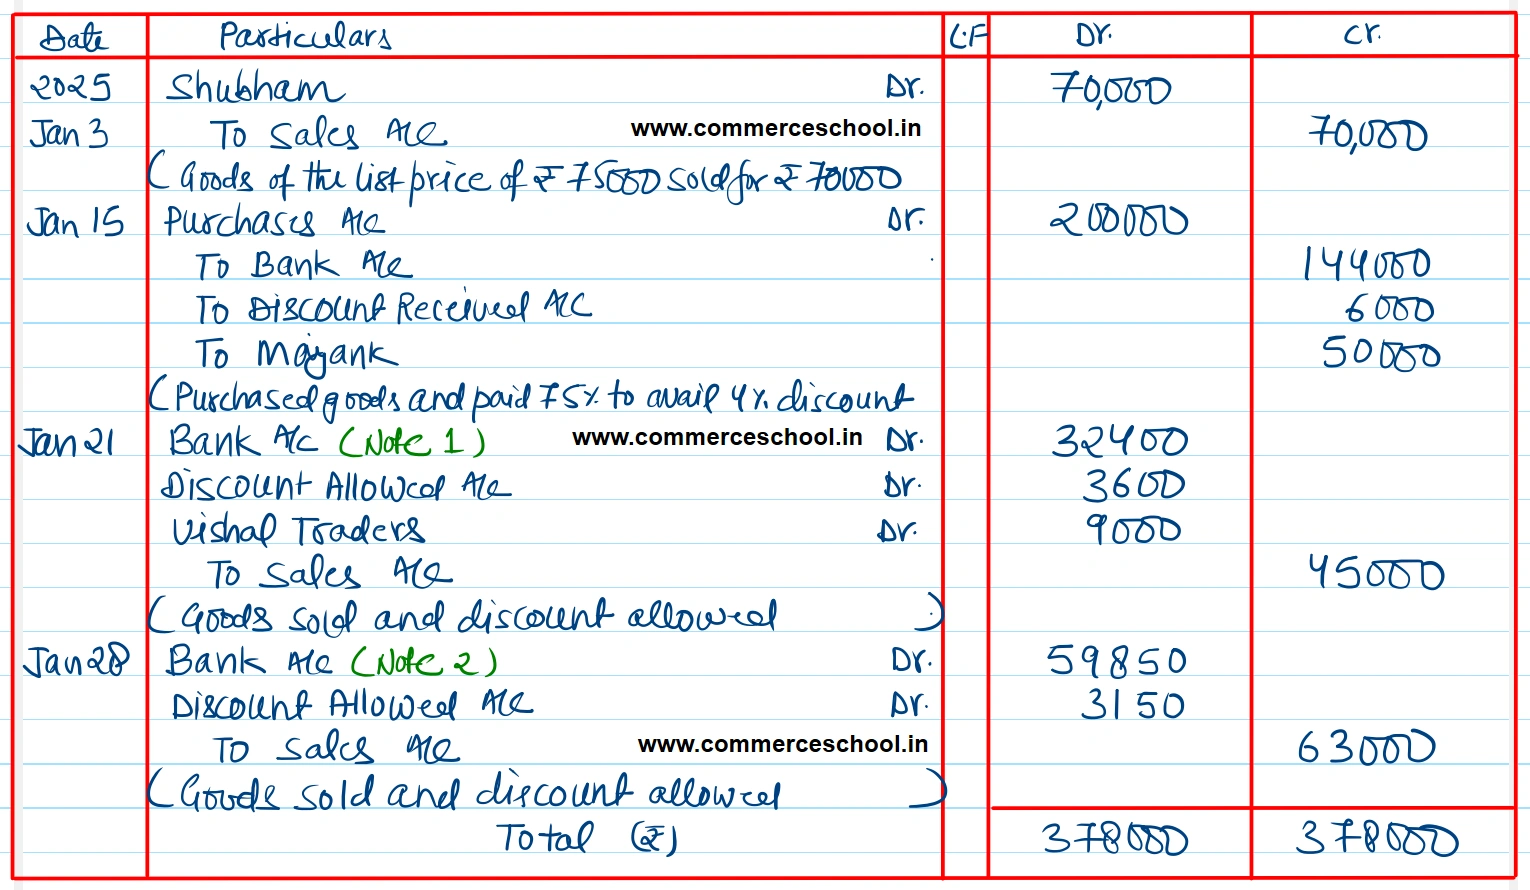 Date Particulars L.F Dr. Cr.
2025 Shubham Dr. 70,000
Jan 3 To Sales A/c www.commerceschool.in 70,000
(Goods of the list price of ₹ 75000 sold for ₹ 70000
Jan 15 Purchases A/c Dr. 200000
To Bank A/c 144000
To Discount Received A/c 6000
To Mayank 50000
(Purchased goods and paid 75% to avail 4% discount
Jan 21 Bank A/c (Note 1) www.commerceschool.in Dr. 32400
Discount Allowed A/c Dr. 3600
Vishal Traders Dr. 9000
To Sales A/c 45000
(Goods sold and discount allowed )
Jan 28 Bank A/c (Note 2) Dr. 59850
Discount Allowed A/c Dr. 3150
To Sales A/c www.commerceschool.in 63000
(Goods sold and discount allowed )
Total (₹) 378000 378000